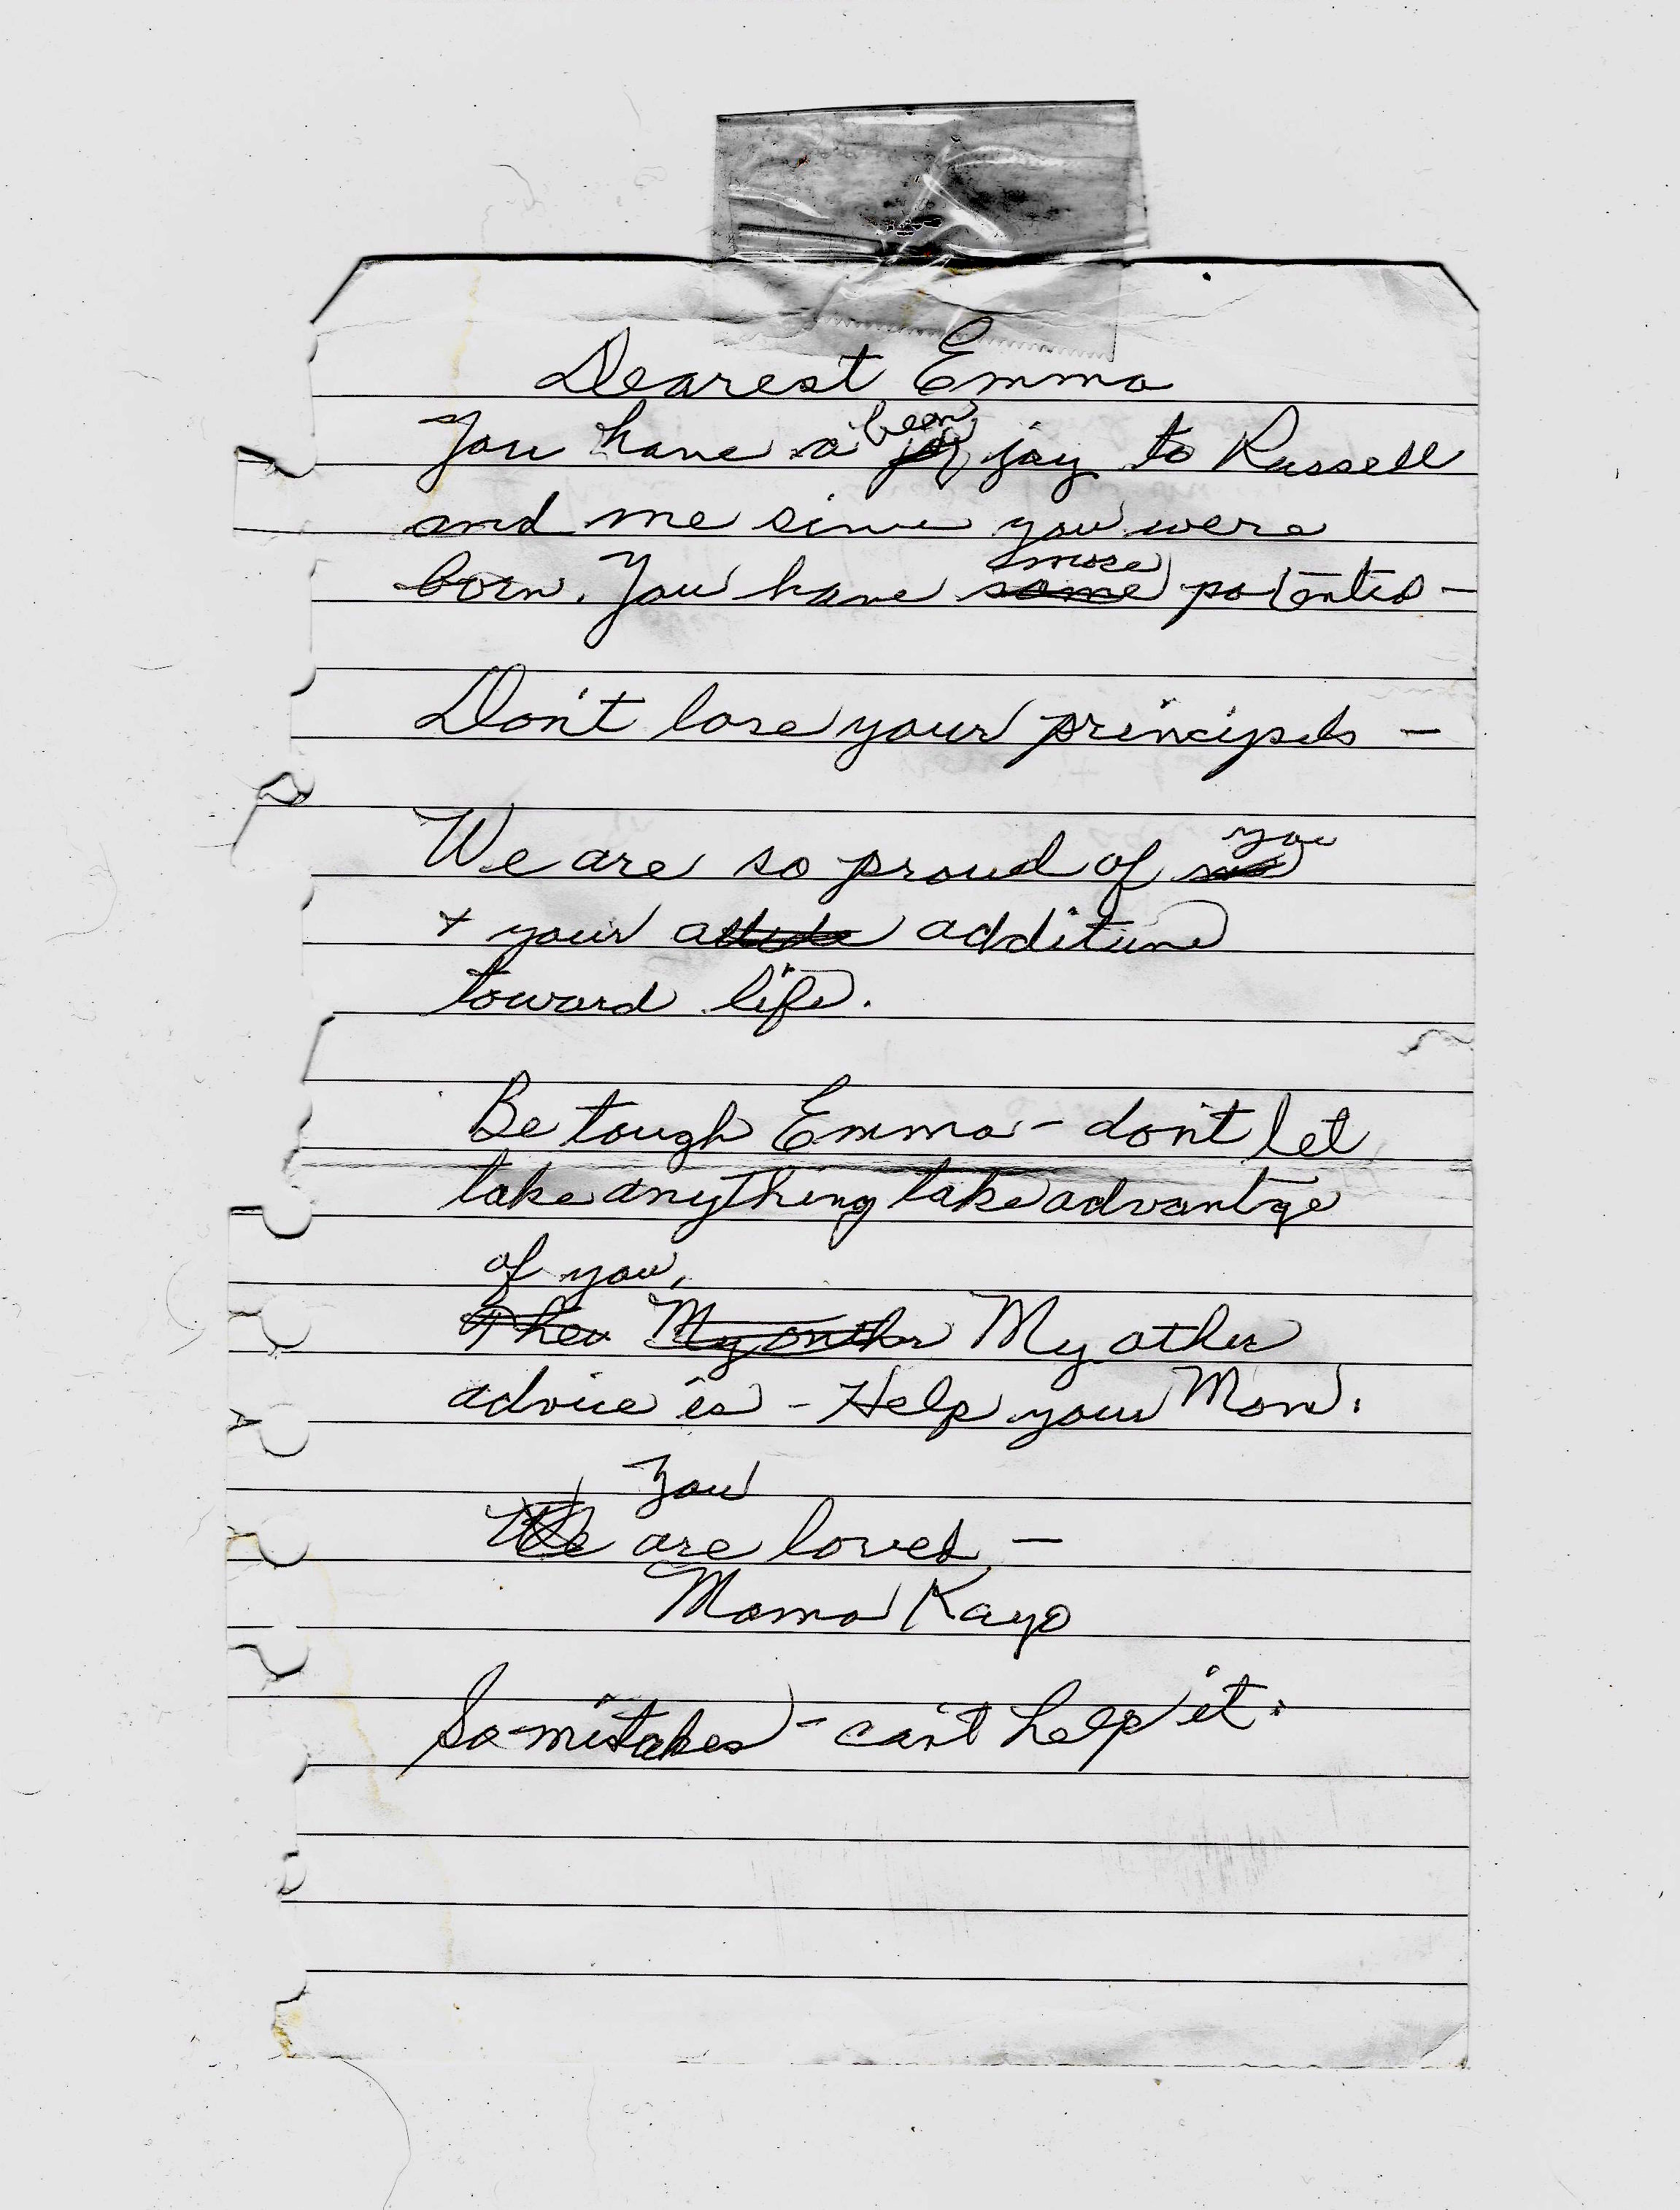 Dearest Emma
You have a been joy to Russell
and me since you were
born. You have more potentio -
Don't lose your principals -
We are so proud of you
+ your additune
toward life.
Be tough Emma - don't let
take anything take advantge
of you.
My other
advice is - Help your Mom.
You
are loved -
Mama Kayo
So mistakes - can't help it.